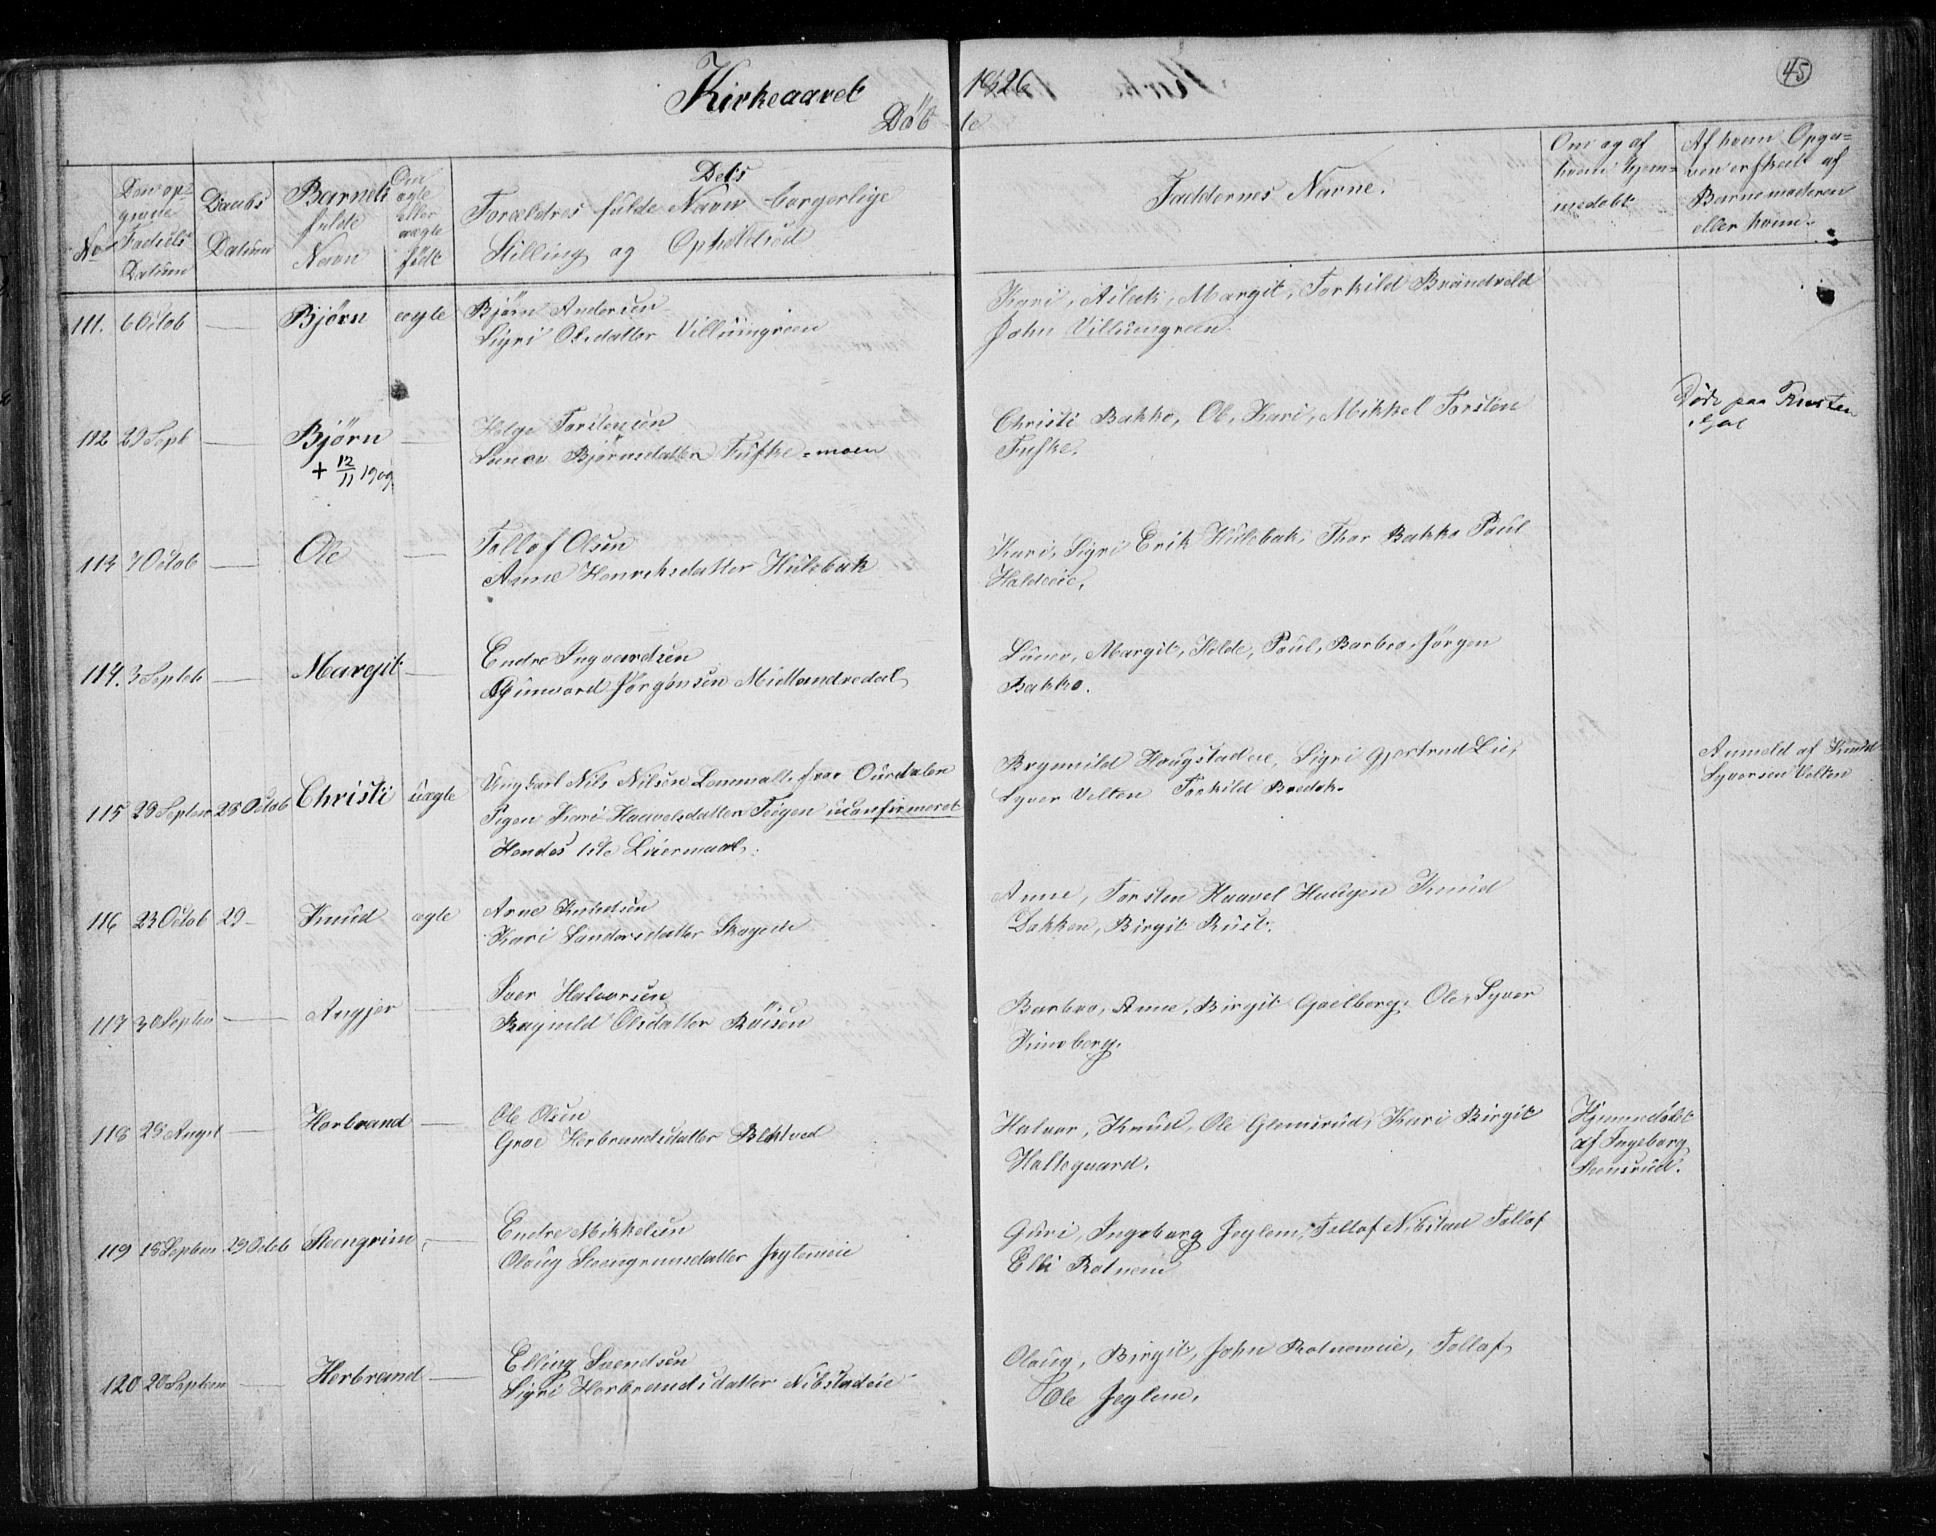 Kirkeaaret 1826
45
Döbte
No
Den op-
givne
Fødsels
Datum
Daabs
Datum
Barnets
fulde
Navn
Om
ægte
eller
uægte
født
Dets
Forældres fulde Navn borgerlige
Stilling og Opholdsted
Faddernes Navne.
Om og af
hvem hjem-
medøbt
Af hvem Opga-
ven er skeet af
Barnemoderen
eller hvem.
111. 6 Octob — Bjørn ægte Bjørn Andersen
Sigri Olsdatter Villumgreen
Kari, Aslak, Margit, Torkild Brandvold
John Villumgreen.
112 29 Sept — Bjørn — Helge Torstensen
+ 12/11 1909
Bjørnsdatter Tufte-moen
Christi Bakko, Ole, Kari, Mikkel Torsten
Tufte.
Døde paa Rusten
i Gol
113 7 Octob — Ole — Tollof Olsen
Anne Henriksdatter Hulebak
Kari, Sigri Erik Hulebak, Thor Bakko Paul
Haldeeie.
114. 3 Septeb — Margit — Endre Ingvardsen
Jørgensen
Margit, Paul, Barbro, Jørgen
Bakko.
115 29 Septem 28 Octob Christi uægte Ungkarl Nils Nilsen fra Ourdalen
Pigen Kari Haavelsdatter Teigen uconfirmeret
Hendes 1ste Leiermaal.
Haugstadeie, Sigri Gjertrud Lie,
Syver Velten Torkild
Anmeldt af Knud
Syversen Velten
116 23 Octob 29 — Knud ægte Arne Knudsen
Kari Sandersdatter
Anne, Torsten Haavel Haugen Knud
Bakken, Birgit Rust.
117 30 Septem — Angjer — Iver Halvorsen
Ragnild Olsdatter
Barbro, Anne, Birgit Golberg, Ole, Syver
118 28 August — Herbrand — Ole Olsen
Groe Herbrandsdatter
Halvor, Knud, Ole Glomsrud, Kari Birgit
Haltegaard.
Hjemmedøbt
af Ingeborg
Steensrud.
119 18 Septem 29 Octob Steengrim — Endre Mikkelsen
Olaug Steengrimsdatter Jeglemeie
Guri, Ingeborg Jeglem, Tollof Nibstad Tollof
Elbi Rotneim
120 20 Septem — Herbrand — Elling Svendsen
Sigri Herbrandsdatter Nibstadeie
Olaug, Birgit, John Rotnemeie, Tollof,
Ole Jeglem.